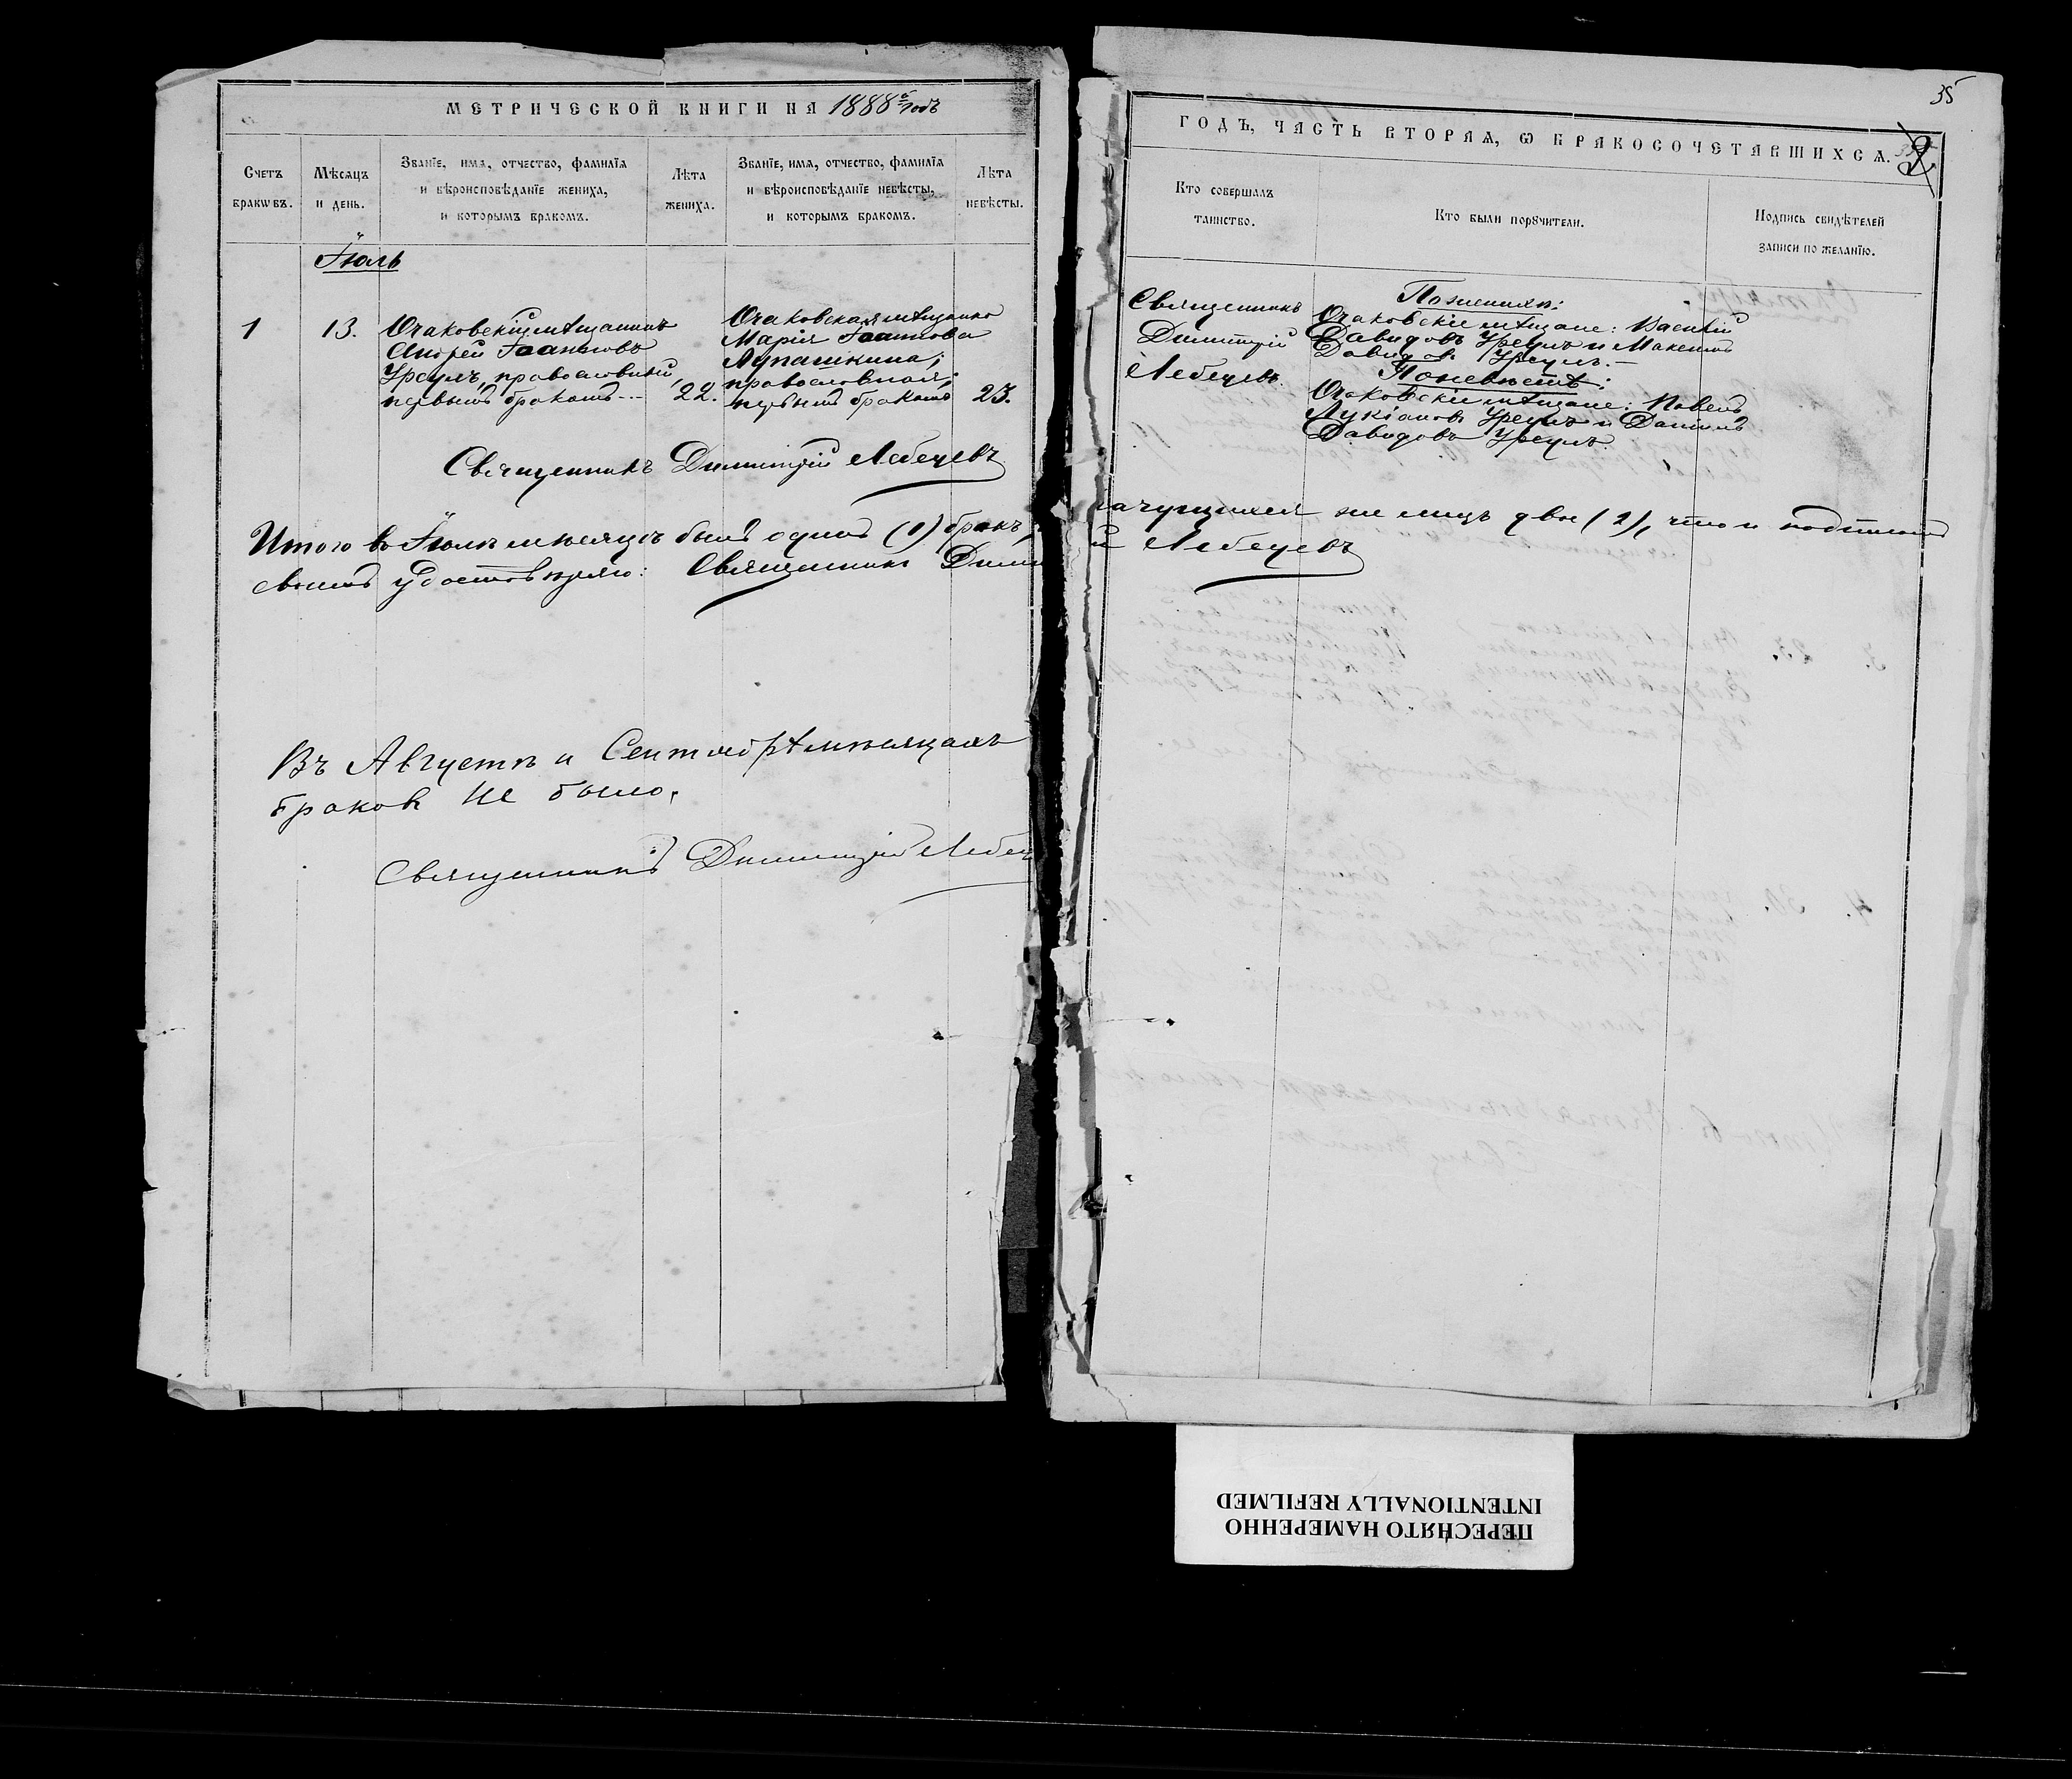 МЕТРИЧЕСКОЙ КНИГИ НА 1888й годъ
Счетъ браковъ.
Мѣсяцъ и день.
Званїе, имѧ, отчество, фамилїѧ
и вѣроисповѣданїе жениха,
и которымъ бракомъ.
Лѣта
жениха.
Званїе, имѧ, отчество, фамилїѧ
и вѣроисповѣданїе невѣсты,
и которымъ бракомъ.
Лѣта
невѣсты.
Іюль
1
13.
Очаковскій мѣщанинъ
Андрей Іоанновъ
Урсулъ, православный,
первымъ бракомъ
22.
Очаковская мѣщанка
Марія Іоаннова
Лупашкина;
православная;
первымъ бракомъ
23.
Священникъ Димитрій Лебедевъ
Итого въ Іюлѣ мѣсяцѣ былъ одинъ (1) бракъ,
свомъ удостовѣряю: Священникъ Дими
Въ Августѣ и Сентябрѣ мѣсяцахъ
браковъ не было.
Священникъ Димитрій Лебед
35
ГОДЪ, ЧАСТЬ ВТОРАѦ, Ѡ БРАКОСОЧЕТАВШИХСѦ.
Кто совершалъ
таинство.
Кто были порꙋчители.
Подпись свидѣтелей
записи по желанїю.
Священникъ
Димитрій
Лебедевъ.
По женихѣ:
Очаковскіе мѣщане: Василій
Давидовъ Урсулъ и Макемъ
Давидовъ Урсулъ.
По невѣстѣ:
Очаковскіе мѣщане: Павелъ
Лукіановъ Урсулъ и Даніилъ
Давидовъ Урсулъ.
же лицъ двое (2), что и
й Лебедевъ
ПЕРЕСНЯТО НАМЕРЕННО
INTENTIONALLY REFILMED